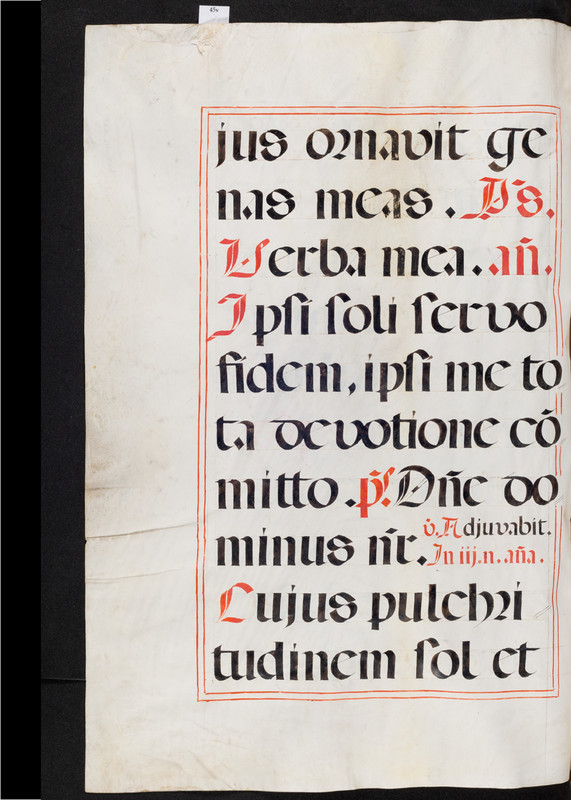 45v
jus ornavit ge
nas meas. Ps.
Verba mea. añ.
Ipsi soli servo
fidem, ipsi me to
ta devotione cõ
mitto. p̃s. Dñe do
minus nr̃. v̇. Adjuvabit.
In iij. n. aña.
Cujus pulchri
tudinem sol et